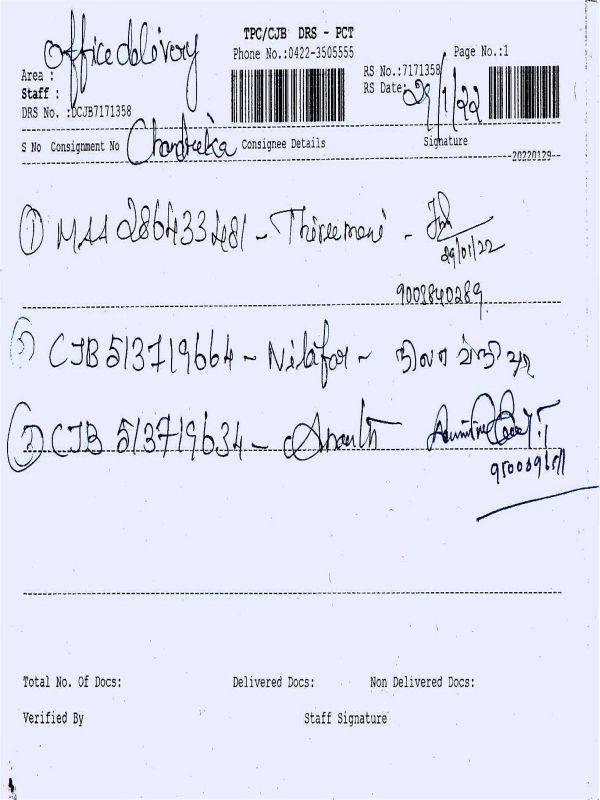 Office delivery
TPC/CJB DRS - PCT
Phone No.:0422-3505555
Page No.:1
Area :
Staff :
DRS No. :DCJB7171358
RS No.:7171358
RS Date: 29/1/22
Chandrika
S No Consignment No Consignee Details Signature
20220129
① MAA 286433481 - Thireemani -
29/01/22
9003840289
CJB 513719664 - Nilafar - நிலா
③ CJB 513719634 - Ananth
Total No. Of Docs: Delivered Docs: Non Delivered Docs:
Verified By Staff Signature